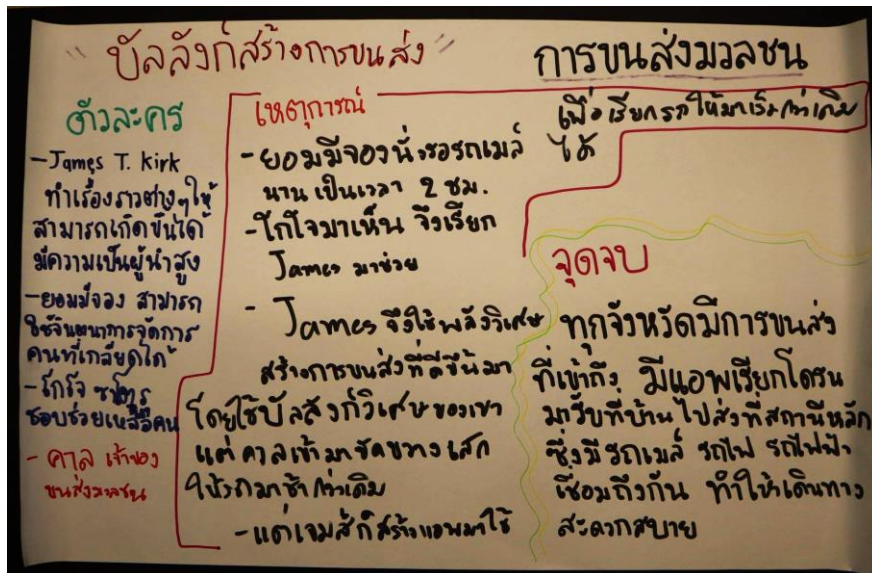 " บัลลังก์สร้างการขนส่ง "
การขนส่งมวลชน
ตัวละคร
- James T. Kirk
ทำเรื่องราวต่างๆให้
สามารถเกิดขึ้นได้
มีความเป็นผู้นำสูง
- ยอมมีจอง สามารถ
ใช้จินตนาการจัดการ
คนที่เกลียดได้
- โกโจ ซาโตรุ
ชอบช่วยเหลือคน
- คาล เจ้าของ
ขนส่งมวลชน
เหตุการณ์
- ยอมมีจองนั่งรอรถเมล์
นานเป็นเวลา 2 ชม.
- โกโจมาเห็น จึงเรียก
James มาช่วย
- James จึงใช้พลังวิเศษ
สร้างการขนส่งที่ดีขึ้นมา
โดยใช้บัลลังก์วิเศษของเขา
แต่คาลเข้ามาขัดขวางเสก
ให้รถมาช้ากว่าเดิม
- แต่เจมส์ก็สร้างแอพมาใช้
เพื่อเรียกรถให้มาเร็วกว่าเดิม
ได้
จุดจบ
ทุกจังหวัดมีการขนส่ง
ที่เข้าถึง มีแอพเรียกโดรน
มารับที่บ้านไปส่งที่สถานีหลัก
ซึ่งมี รถเมล์ รถไฟ รถไฟฟ้า
เชื่อมถึงกัน ทำให้เดินทาง
สะดวกสบาย